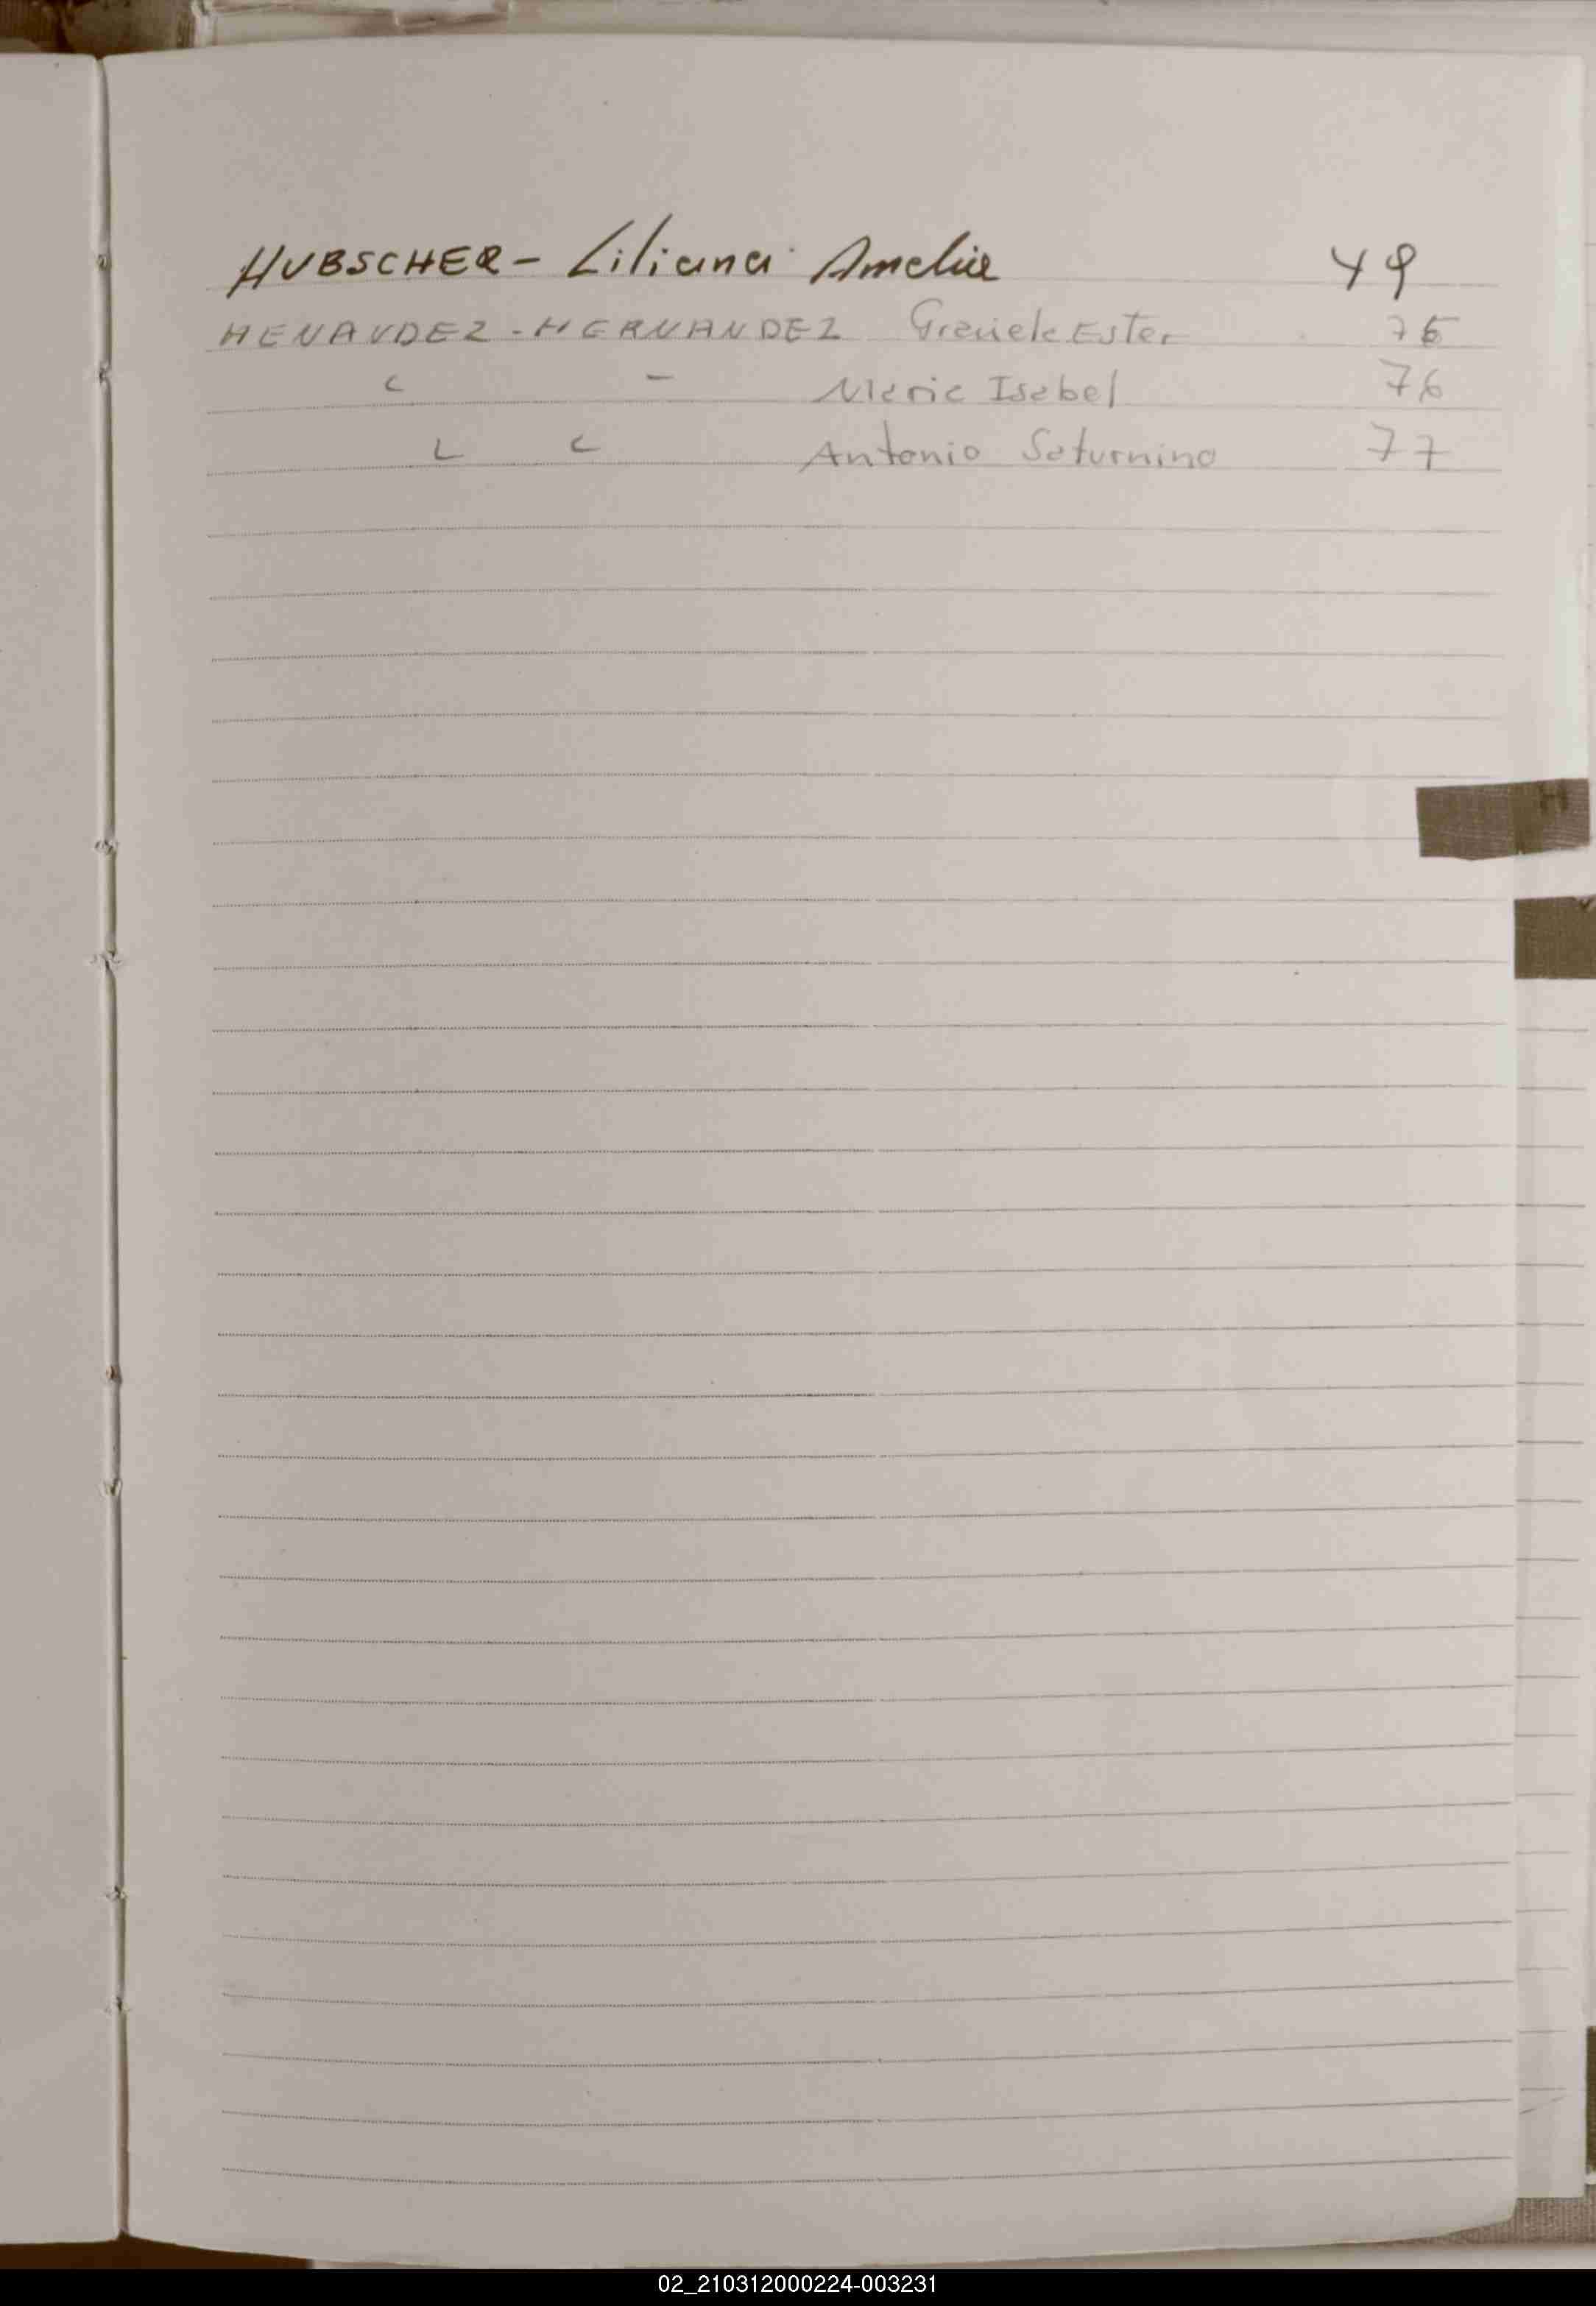 HUBSCHER - Liliana Amelia 49
HENAVDEZ - HERNANDEZ Graciela Ester 76
" " Maria Isabel 76
" " Antonio Saturnino 77
H
02_210312000224-003231